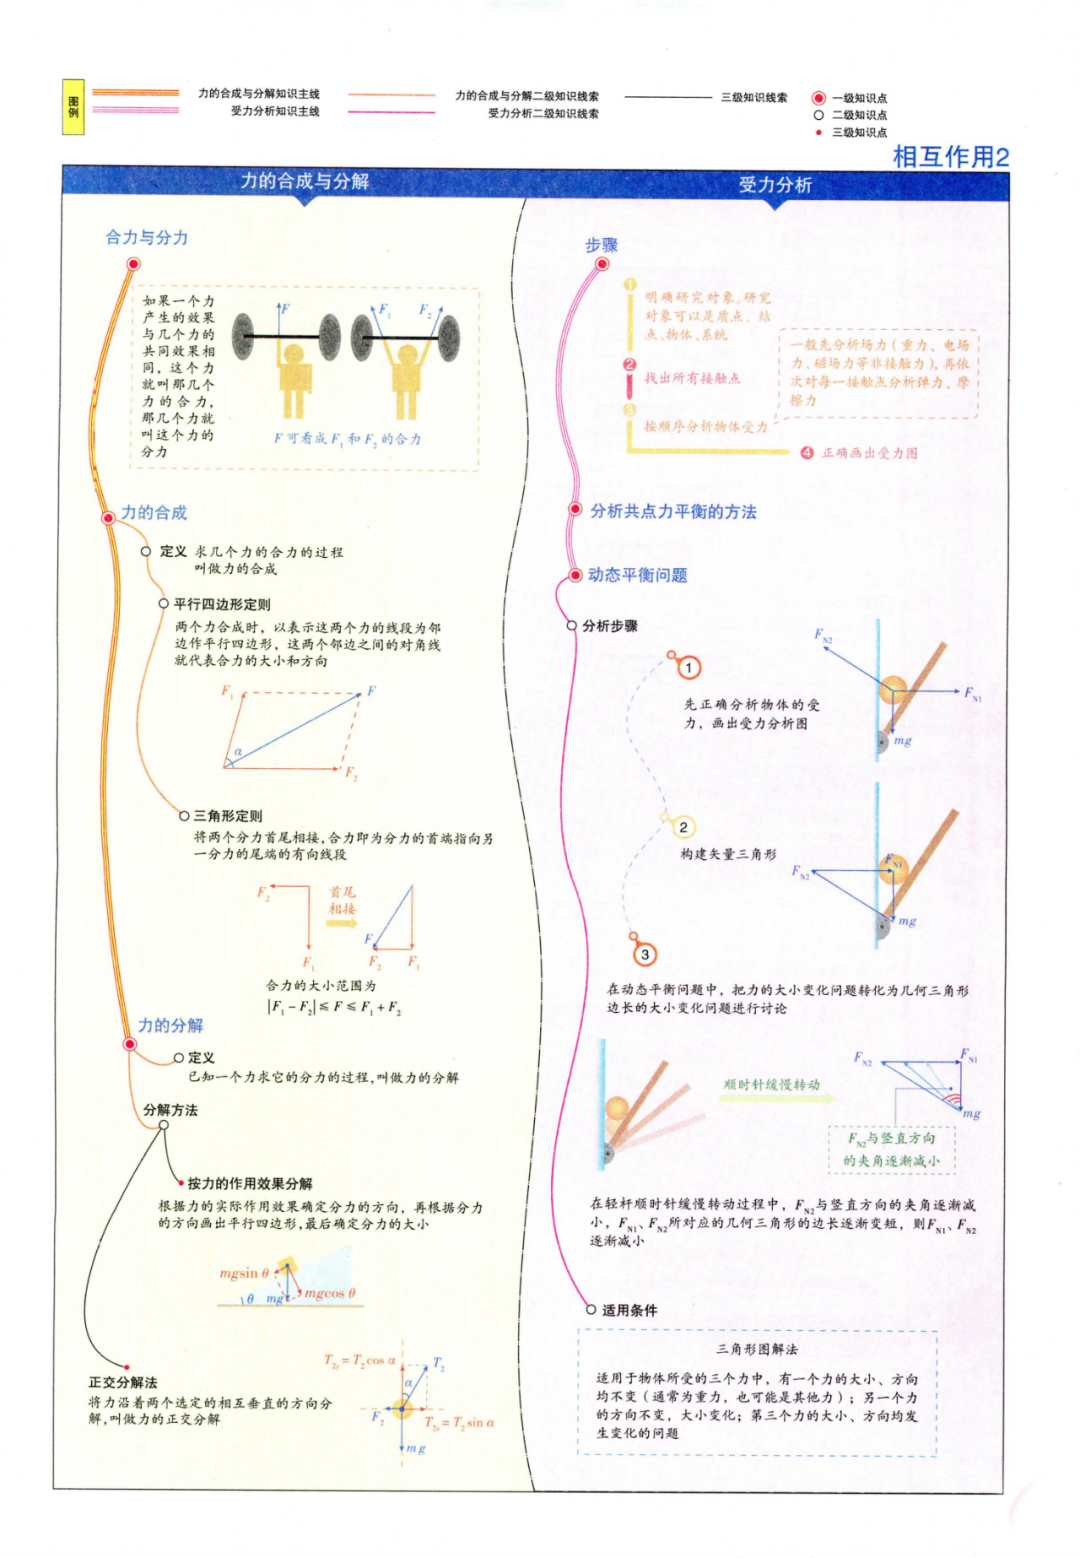 图例
力的合成与分解知识主线
受力分析知识主线
力的合成与分解二级知识线索
受力分析二级知识线索
三级知识线索
一级知识点
二级知识点
三级知识点
相互作用2
力的合成与分解
受力分析
合力与分力
如果一个力
产生的效果
与几个力的
共同效果相
同，这个力
就叫那几个
力的合力，
那几个力就
叫这个力的
分力
F
F₁
F₂
F可看成F₁和F₂的合力
力的合成
定义 求几个力的合力的过程
叫做力的合成
平行四边形定则
两个力合成时，以表示这两个力的线段为邻
边作平行四边形，这两个邻边之间的对角线
就代表合力的大小和方向
F₁
F
α
F₂
三角形定则
将两个分力首尾相接，合力即为分力的首端指向另
一分力的尾端的有向线段
F₂
首尾
相接
F₁
F
F₂
F₁
合力的大小范围为
|F₁－F₂|≤F≤F₁+F₂
力的分解
定义
已知一个力求它的分力的过程，叫做力的分解
分解方法
按力的作用效果分解
根据力的实际作用效果确定分力的方向，再根据分力
的方向画出平行四边形，最后确定分力的大小
mgsin θ
θ
mg
mgcos θ
正交分解法
将力沿着两个选定的相互垂直的方向分
解，叫做力的正交分解
T₂ᵧ=T₂cos α
T₂
α
F₂
T₂ₓ=T₂sin α
mg
步骤
1
明确研究对象。研究
对象可以是质点、结
点、物体、系统
2
找出所有接触点
3
按顺序分析物体受力
一般先分析场力（重力、电场
力、磁场力等非接触力），再依
次对每一接触点分析弹力、摩
擦力
4 正确画出受力图
分析共点力平衡的方法
动态平衡问题
分析步骤
1
先正确分析物体的受
力，画出受力分析图
F_N2
F_N1
mg
2
构建矢量三角形
F_N2
F_N1
mg
3
在动态平衡问题中，把力的大小变化问题转化为几何三角形
边长的大小变化问题进行讨论
顺时针缓慢转动
F_N2
F_N1
mg
F_N2与竖直方向
的夹角逐渐减小
在轻杆顺时针缓慢转动过程中，F_N2与竖直方向的夹角逐渐减
小，F_N1、F_N2所对应的几何三角形的边长逐渐变短，则F_N1、F_N2
逐渐减小
适用条件
三角形图解法
适用于物体所受的三个力中，有一个力的大小、方向
均不变（通常为重力，也可能是其他力）；另一个力
的方向不变，大小变化；第三个力的大小、方向均发
生变化的问题